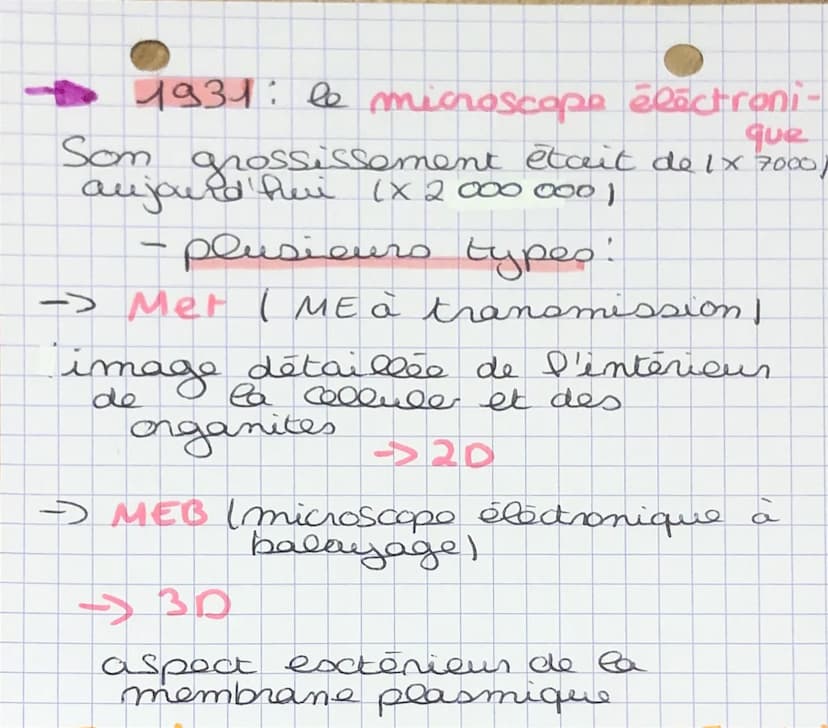 → 1931 : le microscope éléctroni-
que
Son grossissement était de (x 7000)
aujourd'hui (x 2 000 000)
- plusieurs types :
-> Met ( ME à transmission)
image détaillée de l'intérieur
de la cellule et des
organites
-> 2D
-> MEB (microscope éléctronique à
balayage)
-> 3D
aspect extérieur de la
membrane plasmique